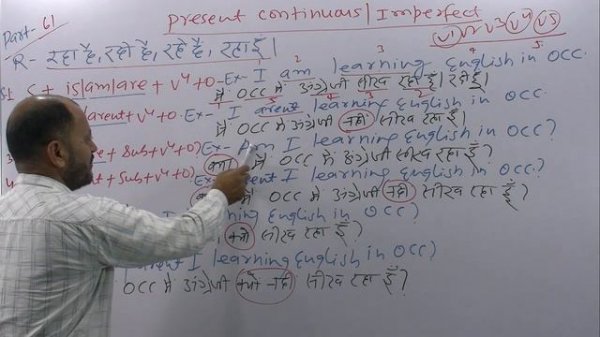 Part-61
present continuous | Imperfect
V1 V2 V3 V4 V5
R- रहा है, रही है, रहे हैं, रहा हूँ।
1 2 3 4 5
S1 S + is/am/are + V4 + O. Ex- I am learning English in OCC.
मैं OCC में अंग्रेजी सीख रहा हूँ।
arent + V4 + O. Ex- I arent learning English in OCC.
मैं OCC में अंग्रेजी नही सीख रहा हूँ।
+ Sub + V4 + O? Ex- Am I learning English in OCC?
क्या मैं OCC में अंग्रेजी सीख रहा हूँ?
t + Sub + V4 + O? Ex- I learning English in OCC?
में OCC में अंग्रेजी नही सीख रहा हूँ?
ning English in OCC?
क्यों सीख रहा हूँ?
arent I learning English in OCC?
OCC में अंग्रेजी क्यों नही सीख रहा हूँ?